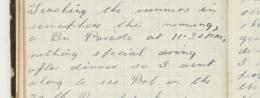 Teaching the runners in
semaphore this morning,
a Bn Parade at 11.30am,
nothing special doing
after dinner so I went
along a see Bob in the